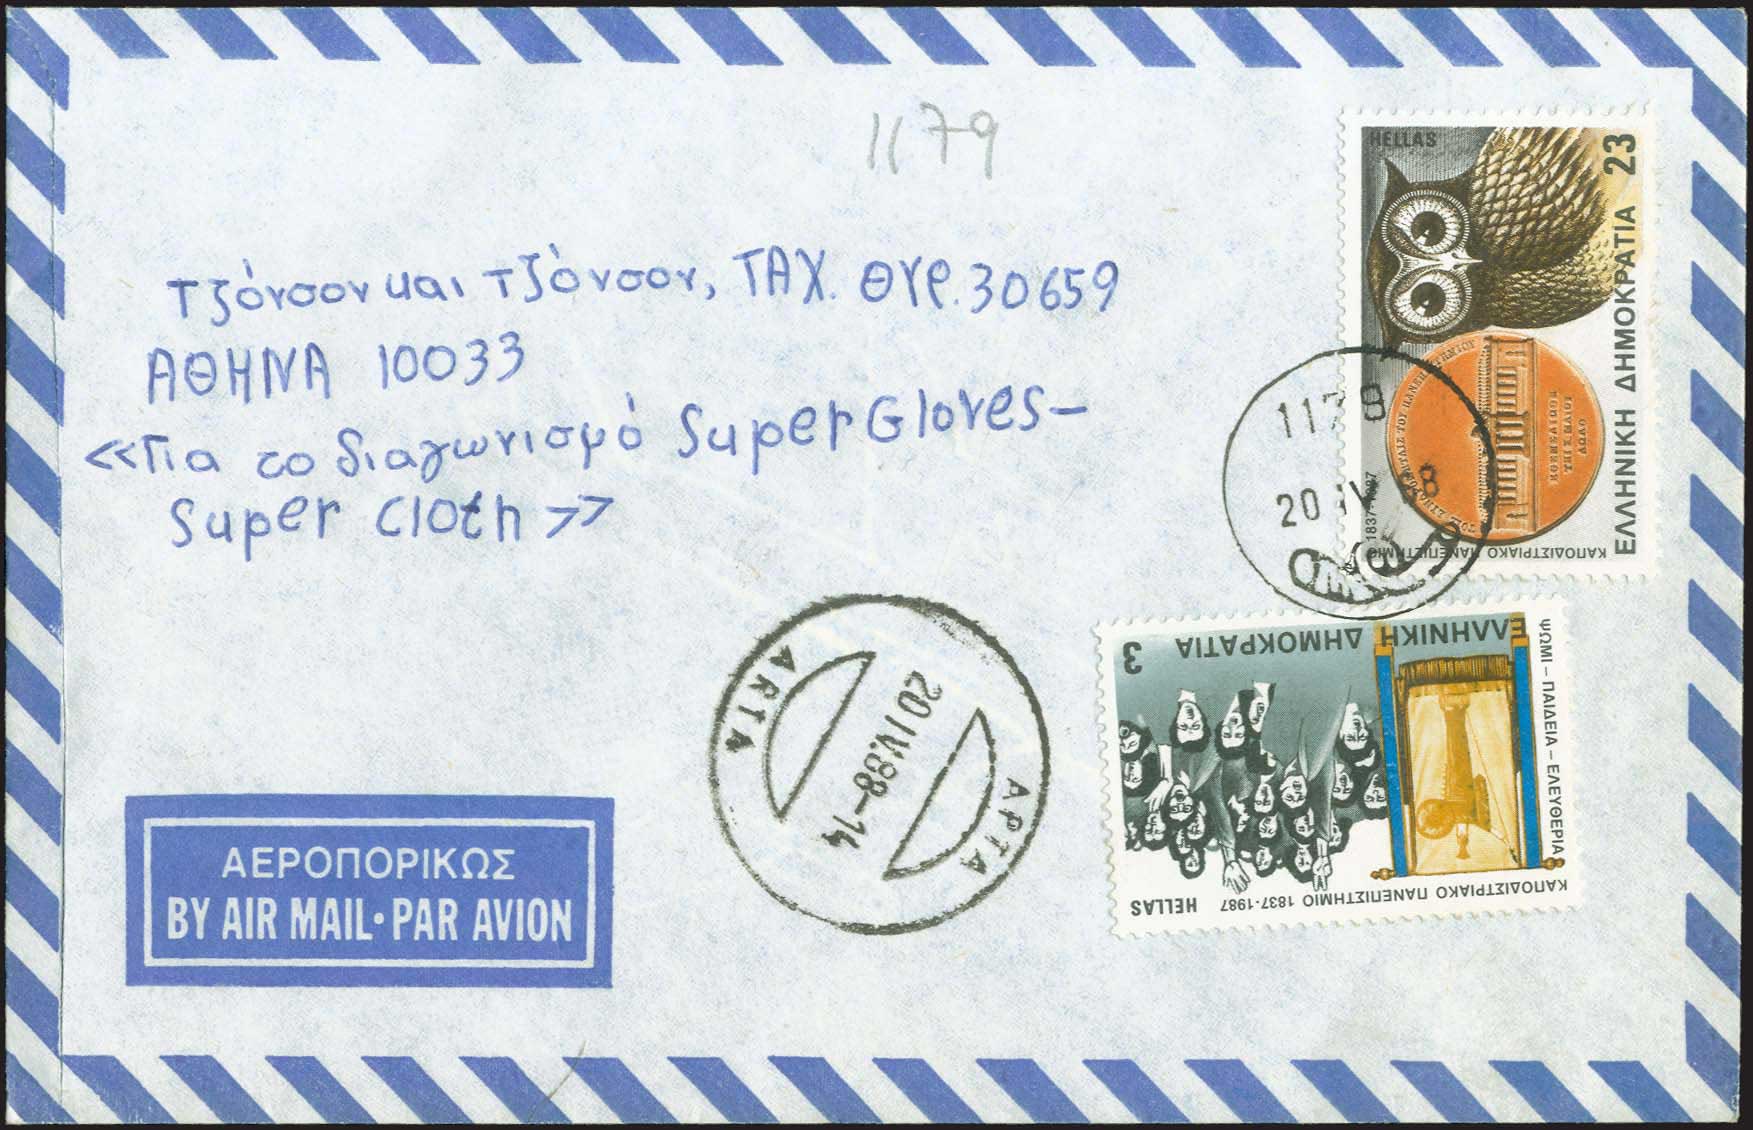 1179
Τζόνσον και Τζόνσον, ΤΑΧ. ΘΥΡ. 30659
ΑΘΗΝΑ 10033
«Για το διαγωνισμό Super Gloves -
Super Cloth»
HELLAS
23
ΕΛΛΗΝΙΚΗ ΔΗΜΟΚΡΑΤΙΑ
1837-1987
ΚΑΠΟΔΙΣΤΡΙΑΚΟ ΠΑΝΕΠΙΣΤΗΜΙΟ
20 IV
3
ΕΛΛΗΝΙΚΗ ΔΗΜΟΚΡΑΤΙΑ
ΨΩΜΙ - ΠΑΙΔΕΙΑ - ΕΛΕΥΘΕΡΙΑ
ΚΑΠΟΔΙΣΤΡΙΑΚΟ ΠΑΝΕΠΙΣΤΗΜΙΟ 1837-1987
HELLAS
ARTA
20 IV.88-14
ΑΡΤΑ
ΑΕΡΟΠΟΡΙΚΩΣ
BY AIR MAIL • PAR AVION